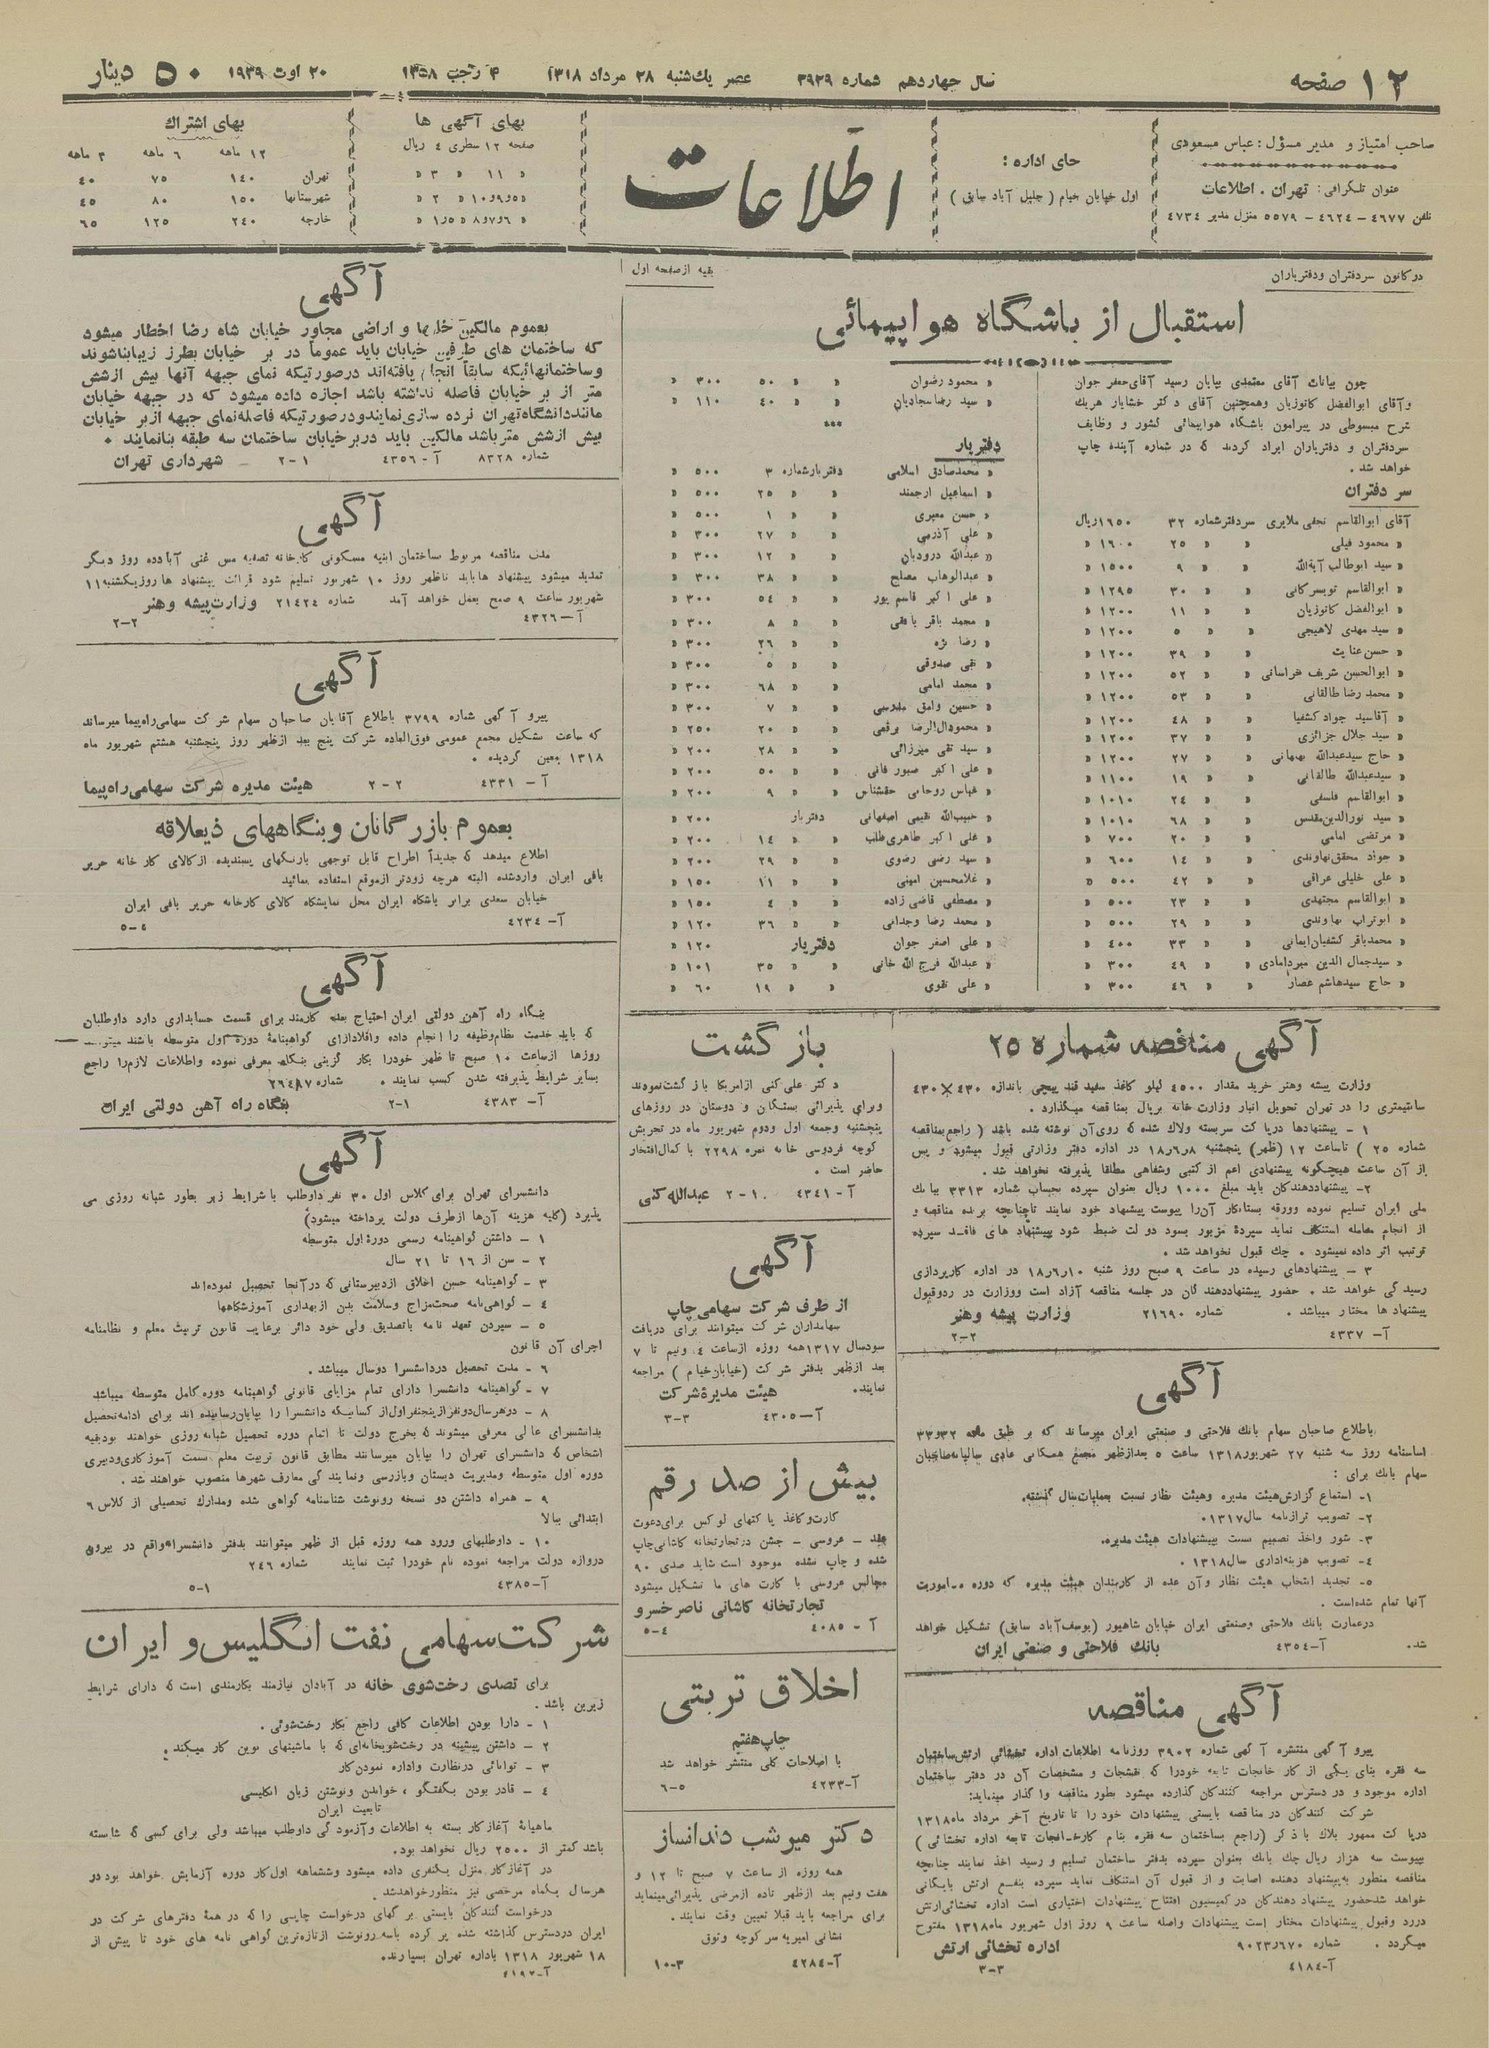 ۱۲ صفحه
سال چهاردهم شماره ۳۹۳۹
عصر یك‌شنبه ۲۸ مرداد ۱۳۱۸
۴ رجب ۱۳۵۸
۲۰ اوت ۱۹۳۹
۵۰ دینار
صاحب امتیاز و مدیر مسؤل: عباس مسعودی
عنوان تلگرافی: تهران . اطلاعات
تلفن ۴۶۷۷ – ۴۶۲۴ – ۵۵۷۹ منزل مدیر ۴۷۳۴
جای اداره:
اول خیابان خیام ( جلیل آباد سابق )
اطلاعات
بهای آگهی ها
صفحه ۱۲ سطری ٤ ریال
« ۱۱ « ۳ «
« ۵و۹و۱۰ « ۲ «
« ۶و۷و۸ « ۱٫۵ «
بهای اشتراك
۱۲ ماهه ۶ ماهه ۳ ماهه
تهران ۱۴۰ ۷۵ ۴۰
شهرستانها ۱۵۰ ۸۰ ۴۵
خارجه ۲۴۰ ۱۲۵ ۶۵
در کانون سردفتران و دفتریاران
بقیه از صفحه اول
استقبال از باشگاه هواپیمائی
چون بیانات آقای معتمدی بپایان رسید آقای جعفر جوان
و آقای ابوالفضل کاتوزیان و همچنین آقای دکتر خشایار هریك
شرح مبسوطی در پیرامون باشگاه هواپیمائی کشور و وظایف
سردفتران و دفتریاران ایراد کردند که در شماره آینده چاپ
خواهد شد .
سر دفتران
آقای ابوالقاسم نجفی ملایری سردفتر شماره ۳۲ ۱۶۵۰ ریال
« محمود فیلی « « ۲۵ ۱۶۰۰ «
« سید ابوطالب آیةالله « « ۹ ۱۵۰۰ «
« ابوالقاسم تویسرکانی « « ۳۰ ۱۲۹۵ «
« ابوالفضل کاتوزیان « « ۱۱ ۱۲۰۰ «
« سید مهدی لاهیجی « « ۵ ۱۲۰۰ «
« حسن عنایت « « ۳۹ ۱۲۰۰ «
« ابوالحسن شریف خراسانی « ۵۲ ۱۲۰۰ «
« محمد رضا طالقانی « « ۵۳ ۱۲۰۰ «
« آقاسید جواد کشفیا « « ۴۸ ۱۲۰۰ «
« سید جلال جزائری « « ۳۷ ۱۲۰۰ «
« حاج سیدعبدالله بهبهانی « « ۲۷ ۱۲۰۰ «
« سیدعبدالله طالقانی « « ۱۹ ۱۱۰۰ «
« ابوالقاسم فلسفی « « ۲۴ ۱۰۱۰ «
« سید نورالدین مقدس « « ۶۸ ۱۰۱۰ «
« مرتضی امامی « « ۲۰ ۷۰۰ «
« جواد محقق نهاوندی « « ۱۴ ۶۰۰ «
« علی خلیلی عراقی « « ۴۲ ۵۰۰ «
« ابوالقاسم مجتهدی « « ۲۳ ۵۰۰ «
« ابوتراب نهاوندی « « ۲۹ ۵۰۰ «
« محمدباقر کشفیان ایمانی « « ۳۳ ۴۰۰ «
« سیدجمال الدین میردامادی « « ۴۹ ۳۰۰ «
« حاج سیدهاشم عصار « « ۴۶ ۳۰۰ «
« محمود رضوان « « ۵۰ ۳۰۰ «
« سید رضا سجادیان « « ۴۰ ۱۱۰ «
***
دفتریار
« محمدصادق اسلامی دفتریار شماره ۳ ۵۰۰ «
« اسماعیل ارجمند « « ۲۵ ۵۰۰ «
« حسن معیری « « ۱ ۵۰۰ «
« علی آذرمی « « ۲۷ ۳۰۰ «
« عبدالله درودیان « « ۱۲ ۳۰۰ «
« عبدالوهاب مصلح « « ۳۸ ۳۰۰ «
« علی اکبر قاسم پور « « ۵۴ ۳۰۰ «
« محمد باقر بافقی « « ۸ ۳۰۰ «
« رضا نژه « « ۲۶ ۳۰۰ «
« تقی صدوقی « « ۵ ۳۰۰ «
« محمد امامی « « ۶۸ ۳۰۰ «
« حسین وامق مدرسی « « ۷ ۳۰۰ «
« محمودال‌الرضا برقعی « « ۲۰ ۲۵۰ «
« سید تقی میرزائی « « ۲۸ ۲۰۰ «
« علی اکبر صبور فانی « « ۵۰ ۲۰۰ «
« عباس روحانی حقشناس « « ۹ ۲۰۰ «
« حبیب‌الله نعیمی اصفهانی دفتریار ۲۰۰ «
« علی اکبر طاهری طلب « « ۱۴ ۲۰۰ «
« سید رضی رضوی « « ۲۹ ۲۰۰ «
« غلامحسین امینی « « ۱۱ ۱۵۰ «
« مصطفی قاضی زاده « « ۴ ۱۵۰ «
« محمد رضا وجدانی « « ۳۶ ۱۲۰ «
« علی اصغر جوان دفتریار ۱۲۰ «
« عبدالله فرج الله خانی « « ۳۵ ۱۰۱ «
« علی تقوی « « ۱۹ ۶۰ «
آگهی مناقصه شماره ۲۵
وزارت پیشه وهنر خرید مقدار ۴۵۰۰ کیلو کاغذ سفید قند پیچی باندازه ۴۳۰×۴۳۰
سانتیمتری را در تهران تحویل انبار وزارت خانه بریال بمناقصه میگذارد .
۱ – پیشنهادها درپاکت سربسته ولاك شده که روی آن نوشته شده باشد ( راجع بمناقصه
شماره ۲۵ ) تاساعت ۱۲ (ظهر) پنجشنبه ۱۸٫۶٫۸ در اداره دفتر وزارتی قبول میشود و پس
از آن ساعت هیچگونه پیشنهادی اعم از کتبی وشفاهی مطلقا پذیرفته نخواهد شد .
۲– پیشنهاددهندگان باید مبلغ ۱۰۰۰ ریال بعنوان سپرده بحساب شماره ۳۳۱۳ ببانك
ملی ایران تسلیم نموده وورقه بستانکار آن‌را پیوست پیشنهاد خود نمایند تاچنانچه برنده مناقصه و
از انجام معامله استنکاف نماید سپردهٔ مزبور بسود دولت ضبط شود پیشنهاد های فاقد سپرده
ترتیب اثر داده نمیشود . چك قبول نخواهد شد .
۳ – پیشنهادهای رسیده در ساعت ۹ صبح روز شنبه ۱۸٫۶٫۱۰ در اداره کارپردازی
رسیدگی خواهد شد . حضور پیشنهاددهندگان در جلسه مناقصه آزاد است ووزارت در ردوقبول
پیشنهاد ها مختار میباشد . شماره ۲۱۶۹۰ وزارت پیشه وهنر
آ– ۴۳۳۷ ۲–۲
آگهی
باطلاع صاحبان سهام بانك فلاحتی و صنعتی ایران میرساند که بر طبق ماده ۳۲و۳۳
اساسنامه روز سه شنبه ۲۷ شهریور ۱۳۱۸ ساعت ۵ بعدازظهر مجمع همگانی عادی سالیانه صاحبان
سهام بانك برای :
۱– استماع گزارش هیئت مدیره وهیئت نظار نسبت بعملیات سال گذشته.
۲– تصویب ترازنامه سال ۱۳۱۷.
۳– شور واخذ تصمیم نسبت بپیشنهادات هیئت مدیره.
۴– تصویب هزینه اداری سال ۱۳۱۸ .
۵– تجدید انتخاب هیئت نظار وآن عده از کارمندان هیئت مدیره که دوره مأموریت
آنها تمام شده‌است .
درعمارت بانك فلاحتی وصنعتی ایران خیابان شاهپور (یوسف‌آباد سابق) تشکیل خواهد
شد. آ–۴۳۵۴ بانك فلاحتی و صنعتی ایران
آگهی مناقصه
پیرو آگهی منتشره آگهی شماره ۳۹۰۲ روزنامه اطلاعات اداره تخشائی ارتش ساختمان
سه فقره بنای یکی از کار خانجات تابعه خودرا که نقشجات و مشخصات آن در دفتر ساختمان
اداره موجود و در دسترس مراجعه کنندگان گذارده میشود بطور مناقضه واگذار مینماید:
شرکت کنندگان در مناقصه بایستی پیشنهادات خود را تا تاریخ آخر مرداد ماه ۱۳۱۸
درپاکت ممهور بلاك با ذکر (راجع بساختمان سه فقره بنام کارخانجات تابعه اداره تخشائی )
بپیوست سه هزار ریال چك بانك بعنوان سپرده بدفتر ساختمان تسلیم و رسید اخذ نمایند چنانچه
مناقصه منظور به‌پیشنهاد دهنده اصابت و از قبول آن استنکاف نماید سپرده بنفع ارتش بایگانی
خواهد شدحضور پیشنهاد دهندگان در کمیسیون افتتاح پیشنهادات اختیاری است اداره تخشائی‌ارتش
دررد وقبول پیشنهادات مختار است پیشنهادات واصله ساعت ۹ روز اول شهریور ماه ۱۳۱۸ مفتوح
میگردد . شماره ۹۰۲۳٫۶۷۰ اداره تخشائی ارتش
آ–۴۱۸۴ ۳–۳
بازگشت
دکتر علی کنی ازامریکا بازگشت نمودند
وبرای پذیرائی بستگان و دوستان در روزهای
پنجشنبه وجمعه اول ودوم شهریور ماه در تجریش
کوچه فردوسی خانه نمره ۲۲۹۸ با کمال افتخار
حاضر است .
آ– ۴۳۴۱ ۲–۱ عبدالله کنی
آگهی
از طرف شرکت سهامی چاپ
سهامداران شرکت میتوانند برای دریافت
سودسال ۱۳۱۷ همه روزه ازساعت ٤ ونیم تا ۷
بعد ازظهر بدفتر شرکت (خیابان خیام ) مراجعه
نمایند. هیئت مدیرهٔ شرکت
آ– ۴۳۰۵ ۳–۳
بیش از صد رقم
کارت‌وکاغذ پاکتهای لوکس برای‌دعوت
عقد – عروسی – جشن درتجارتخانه کاشانی چاپ
شده و چاپ نشده موجود است شاید صدی ۹۰
مجالس عروسی با کارت های ما تشکیل میشود
تجارتخانه کاشانی ناصر خسرو
آ – ۴۰۸۵ ۵–۴
اخلاق تربتی
چاپ هفتم
با اصلاحات کلی منتشر خواهد شد
آ–۴۲۳۳ ۶–۵
دکتر میوشب دندانساز
همه روزه از ساعت ۷ صبح تا ۱۲ و
هفت ونیم بعد ازظهر تاده ازمرضی پذیرائی مینماید
برای مراجعه باید قبلا تعیین وقت نمایند .
نشانی امیریه سر کوچه وثوق
آ–۴۲۸۴ ۱۰–۳
آگهی
بعموم مالکین خانه‌ها و اراضی مجاور خیابان شاه رضا اخطار میشود
که ساختمان های طرفین خیابان باید عموماً در بر خیابان بطرز زیبابناشوند
وساختمانهائیکه سابقاً انجام یافته‌اند درصورتیکه نمای جبهه آنها بیش ازشش
متر از بر خیابان فاصله نداشته باشد اجازه داده میشود که در جبهه خیابان
مانند دانشگاه تهران نرده سازی نمایند و درصورتیکه فاصله نمای جبهه ازبر خیابان
بیش ازشش مترباشد مالکین باید دربرخیابان ساختمان سه طبقه بنانمایند .
شماره ۸۳۲۸ آ– ۴۳۵۶ ۲–۱ شهرداری تهران
آگهی
مدت مناقصه مربوط ساختمان ابنیه مسکونی کارخانه تصفیه مس غنی آبادده روز دیگر
تمدید میشود پیشنهاد هاباید تاظهر روز ۱۰ شهریور تسلیم شود قرائت پیشنهاد ها روزیکشنبه ۱۱
شهریور ساعت ۹ صبح بعمل خواهد آمد شماره ۲۱۴۲۴ وزارت پیشه وهنر
آ–۴۳۲۶ ۲–۲
آگهی
پیرو آگهی شماره ۳۷۹۹ باطلاع آقایان صاحبان سهام شرکت سهامی راه‌پیما میرساند
که ساعت تشکیل مجمع عمومی فوق‌العاده شرکت پنج بعد ازظهر روز پنجشنبه هشتم شهریور ماه
۱۳۱۸ معین گردیده .
آ – ۴۳۳۱ ۲–۲ هیئت مدیره شرکت سهامی راه‌پیما
بعموم بازرگانان و بنگاههای ذیعلاقه
اطلاع میدهد که جدیداً اطراح قابل توجهی بارنگهای پسندیده ازکالای کارخانه حریر
بافی ایران واردشده البته هرچه زودتر ازموقع استفاده نمائید
خیابان سعدی برابر باشگاه ایران محل نمایشگاه کالای کارخانه حریر بافی ایران
آ– ۴۲۳۴ ۵–۴
آگهی
بنگاه راه آهن دولتی ایران احتیاج بعده کارمند برای قسمت حسابداری دارد داوطلبان
که باید خدمت نظام‌وظیفه را انجام داده واقلادارای گواهینامهٔ دوره اول متوسطه باشند میتوانند
روزها ازساعت ۱۰ صبح تا ظهر خودرا بکار گزینی بنگاه معرفی نموده واطلاعات لازم‌را راجع
بسایر شرایط پذیرفته شدن کسب نمایند . شماره ۲۶۴۸۷
آ– ۴۳۸۳ ۲–۱ بنگاه راه آهن دولتی ایران
آگهی
دانشسرای تهران برای کلاس اول ۳۰ نفر داوطلب با شرایط زیر بطور شبانه روزی می
پذیرد (کلیه هزینه آن‌ها ازطرف دولت پرداخته میشود)
۱ – داشتن گواهینامه رسمی دورهٔ اول متوسطه
۲ – سن از ۱۶ تا ۲۱ سال
۳ – گواهینامه حسن اخلاق ازدبیرستانی که درآنجا تحصیل نموده‌اند
۴ – گواهی‌نامه صحت‌مزاج وسلامت بدن ازبهداری آموزشگاهها
۵ – سپردن تعهد نامه باتصدیق ولی خود دائر برعایت قانون تربیت معلم و نظامنامه
اجرای آن قانون
۶ – مدت تحصیل دردانشسرا دوسال میباشد .
۷ – گواهینامه دانشسرا دارای تمام مزایای قانونی گواهینامه دوره کامل متوسطه میباشد
۸ – درهرسال دونفر ازپنجنفر اول از کسانیکه دانشسرا را بپایان رسانیده اند برای ادامه تحصیل
بدانشسرای عالی معرفی میشوند که بخرج دولت تا اتمام دوره تحصیل شبانه روزی خواهند بود بقیه
اشخاص که دانشسرای تهران را بپایان میرسانند مطابق قانون تربیت معلم بسمت آموزگاری و دبیری
دوره اول متوسطه ومدیریت دبستان وبازرسی ونمایندگی معارف شهرها منصوب خواهند شد .
۹ – همراه داشتن دو نسخه رونوشت شناسنامه گواهی شده ومدارك تحصیلی از کلاس ۶
ابتدائی ببالا
۱۰ – داوطلبهای ورود همه روزه قبل از ظهر میتوانند بدفتر دانشسرا واقع در بیرون
دروازه دولت مراجعه نموده نام خودرا ثبت نمایند شماره ۲۴۶
آ–۴۳۸۵ ۵–۱
شرکت سهامی نفت انگلیس و ایران
برای تصدی رخت‌شوی خانه در آبادان نیازمند بکارمندی است که دارای شرایط
زیرین باشد .
۱ – دارا بودن اطلاعات کافی راجع بکار رخت‌شوئی .
۲ – داشتن پیشینه در رخت‌شویخانه‌ای که با ماشینهای نوین کار میکند .
۳ – توانائی درنظارت واداره نمودن‌کار
۴ – قادر بودن بگفتگو ، خواندن ونوشتن زبان انگلیسی
تابعیت ایران
ماهیانهٔ آغاز کار بسته به اطلاعات وآزمودگی داوطلب میباشد ولی برای کسی که شایسته
باشد کمتر از ۲۵۰۰ ریال نخواهد بود.
در آغاز کار منزل یکنفری داده میشود وششماهه اول کار دوره آزمایش خواهد بود در
هرسال یکماه مرخصی نیز منظورخواهدشد .
درخواست کنندگان بایستی برگهای درخواست چاپی را که در همهٔ دفترهای شرکت در
ایران دردسترس گذاشته شده پر کرده باسه رونوشت ازتازه‌ترین گواهی نامه های خود تا پیش از
۱۸ شهریور ۱۳۱۸ باداره تهران بسپارند.
آ–۴۱۹۷